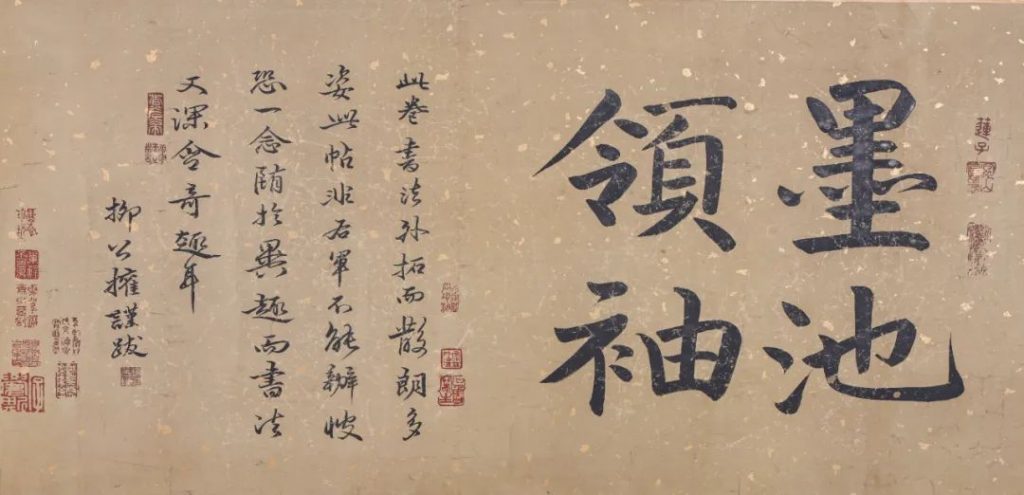 墨池
領袖
此卷書法外拓而散朗多
姿此帖非右軍不能辦
恐一念於異趣而書法
又深奇趣耳
柳公權謹跋